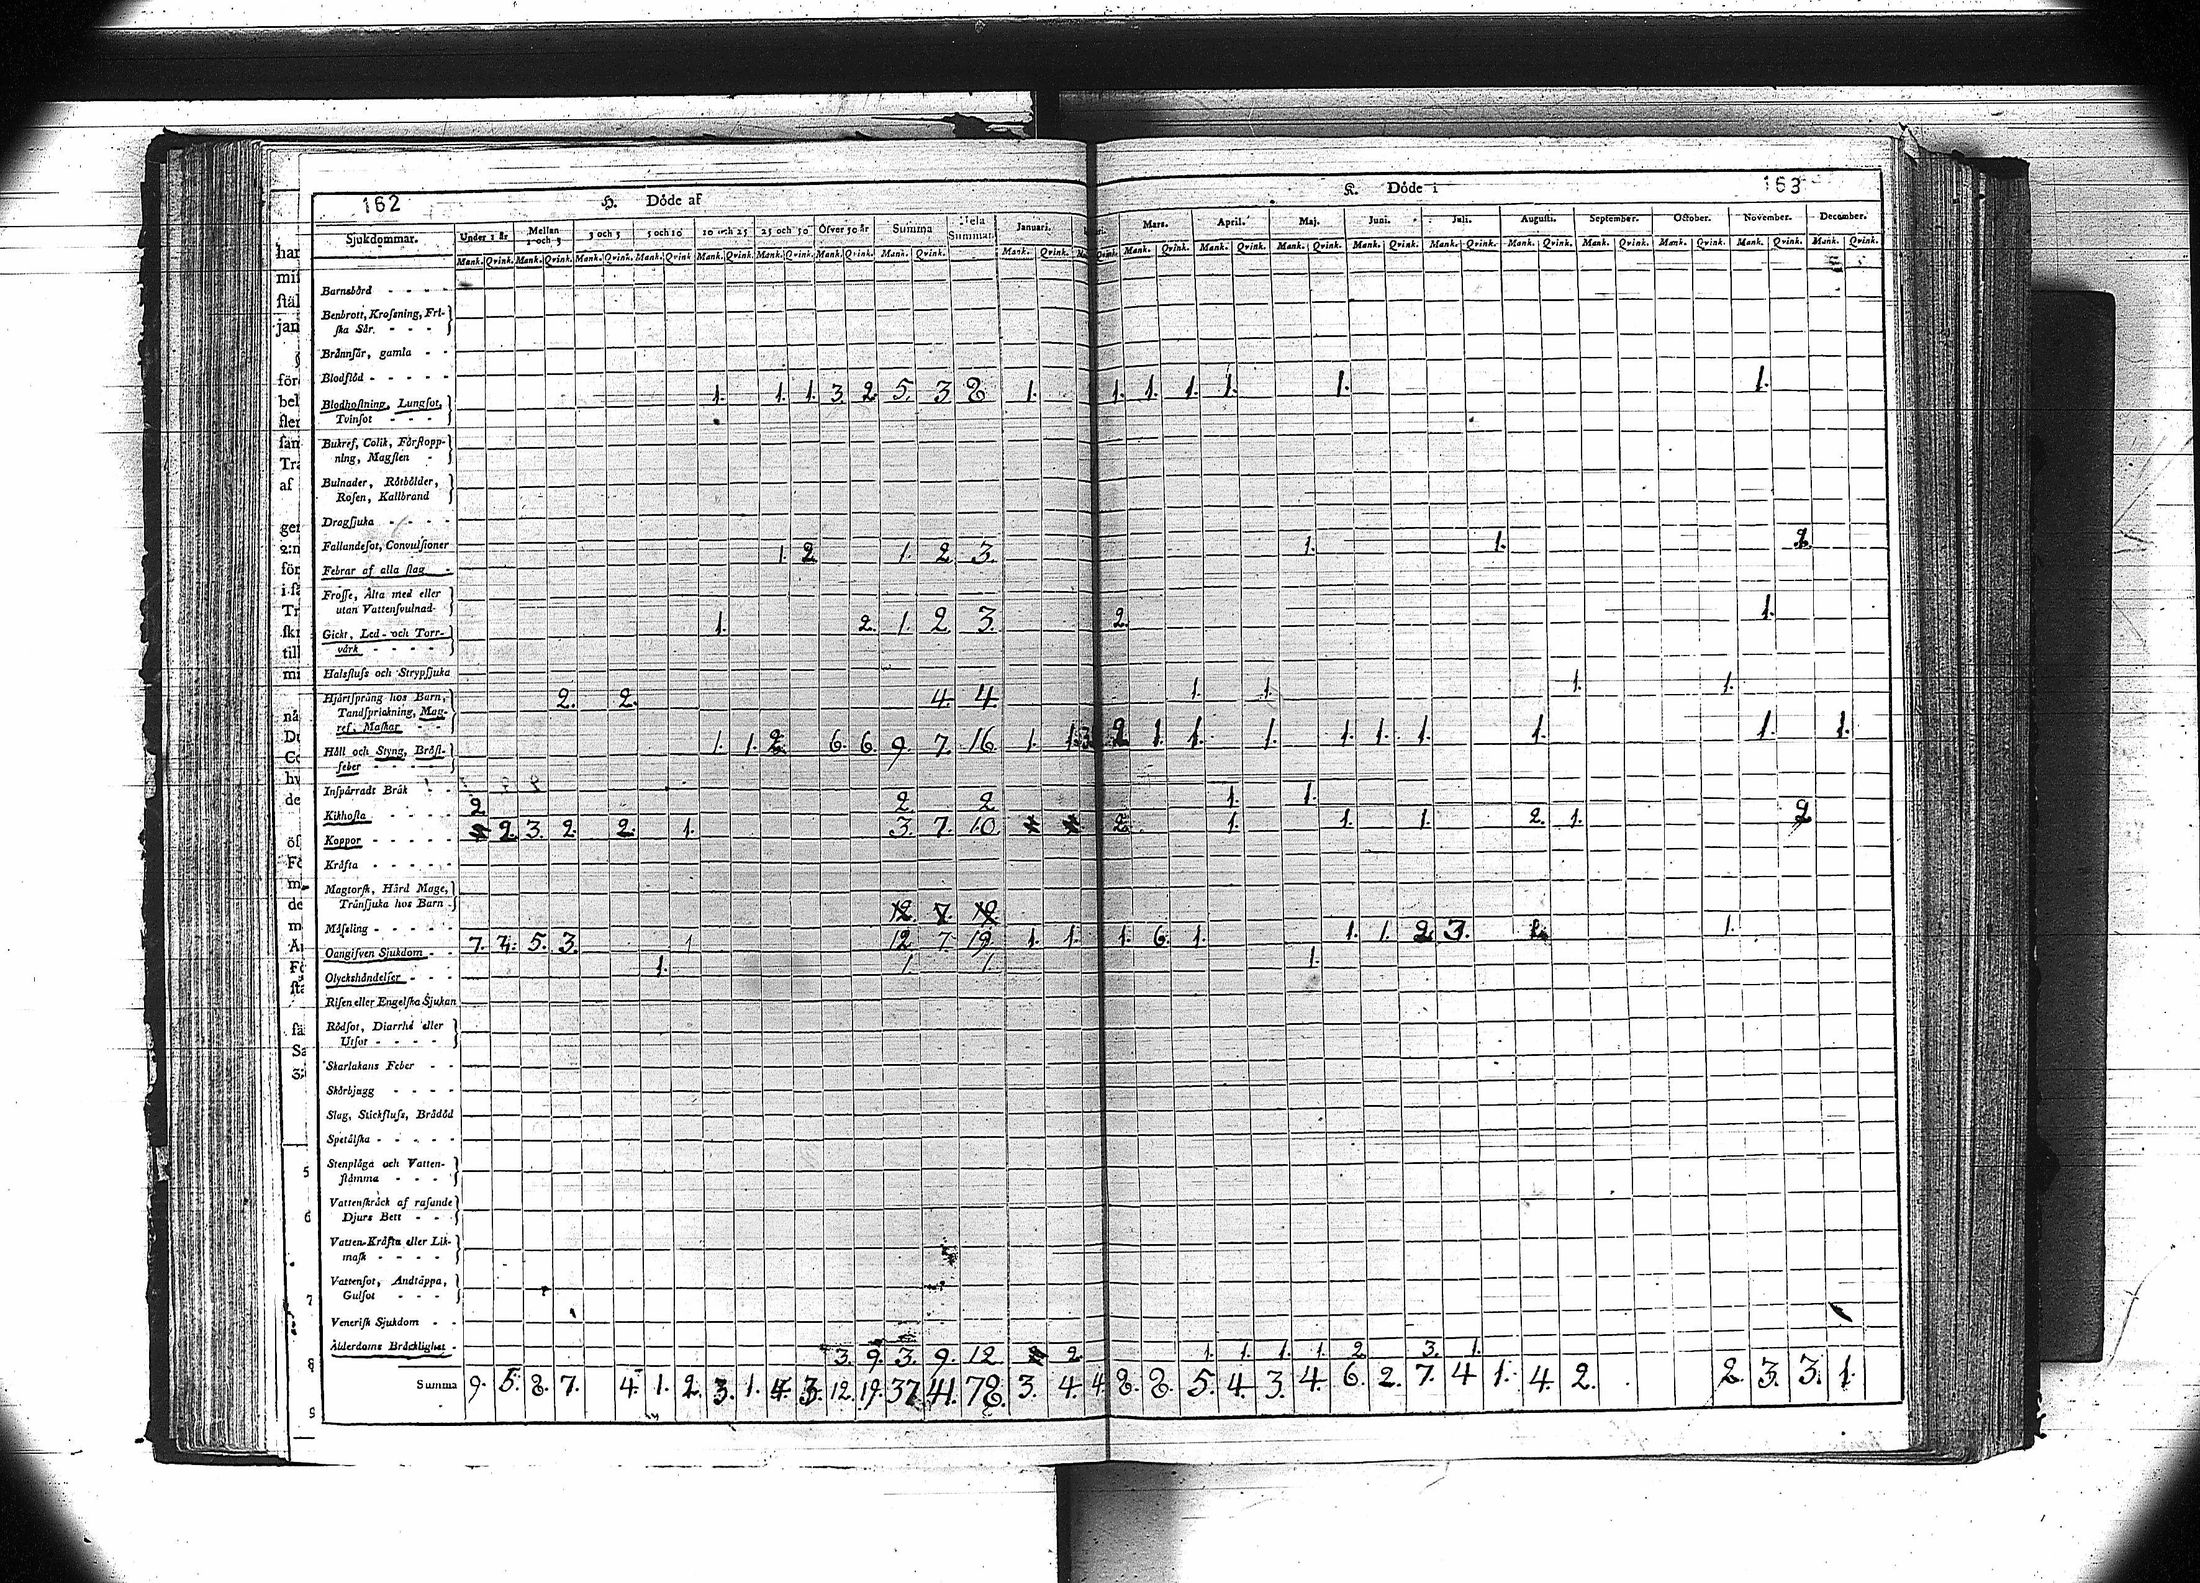 162
H. Döde af
Sjukdommar. Under 1 år Mellan 1 och 3 3 och 5 5 och 10 10 och 25 25 och 50 Öfver 50 år Summa Hela Summan.
Mank. Qvink. Mank. Qvink. Mank. Qvink. Mank. Qvink. Mank. Qvink. Mank. Qvink. Mank. Qvink. Mank. Qvink.
Barnsbörd - - - -
Benbrott, Krosning, Fri-
ska Sår. - - -
Brånnsår, gamla - -
Blodflöd - - - - -
1. 1. 1. 3. 2. 5. 3 8
Blodhostning, Lungsot,
Tvinsot - - -
Bukref, Colik, Förstopp-
ning, Magsten -
Bulnader, Rötbölder,
Rosen, Kallbrand
Dragsjuka - - - -
Fallandesot, Convulsioner
1. 2. 1. 2 3.
Febrar af alla slag -
Frosse, Ålta med eller
utan Vattensvulnad-
1. 2. 1. 2. 3.
Gickt, Led- och Torr-
värk - - - -
Halsfluss och Strypsjuka
Hjärtsprång hos Barn,
Tandsprickning, Mag-
ref, Maskar - -
2. 2. 4. 4
Håll och Styng, Bröst-
feber - - - -
1. 1. 2. 6. 6. 9. 7. 16
Inspärradt Bråk - -
Kikhosta - - - -
2 2. 2
Koppor - - - - -
2. 3. 2. 2. 1. 3. 7. 10.
Kräfta - - - - -
Magtorsk, Hård Mage,
Trånsjuka hos Barn -
12. 7. 19
Måsling - - - -
Oangifven Sjukdom - -
7. 5. 3. 1 12 7. 19.
Olyckshändelser - - -
1. 1. 1.
Risen eller Engelska Sjukan
Rödsot, Diarrhé eller
Utsot - - - -
Skarlakans Feber - -
Skörbjugg - - - -
Slag, Stickfluss, Brådöd
Spetälska - - - - -
Stenplåga och Vatten-
stämma - - - -
Vattenskräck af rasande
Djurs Bett - - -
Vatten-Kräfta eller Lik-
mask - - - -
Vattensot, Andtäppa,
Gulsot - - -
Venerisk Sjukdom - -
Ålderdoms Bräcklighet -
3. 9. 3. 9. 12
Summa 9. 5. 8. 7. 4. 1. 2. 3. 1. 4. 3. 12. 19. 37. 41. 78.
163
K. Döde i
Januari. Mars. April. Maj. Juni. Juli. Augusti. September. October. November. December.
Mank. Qvink. Mank. Qvink. Mank. Qvink. Mank. Qvink. Mank. Qvink. Mank. Qvink. Mank. Qvink. Mank. Qvink. Mank. Qvink. Mank. Qvink. Mank. Qvink.
1. 1. 1. 1. 1. 1. 1.
1. 1. 2.
2. 1.
1. 1. 1. 1.
1. 1. 3 2 1. 1. 1. 1. 1. 1. 1. 1. 1.
1. 1.
2. 1. 1. 1. 2. 1. 2
1. 1. 1. 6. 1. 1. 1. 2 3. 1.
1.
2. 1. 1. 1. 1. 2. 3. 1.
3. 4. 4. 8. 8. 5. 4. 3. 4. 6. 2. 7. 4 1. 4. 2. 2. 3. 3. 1.